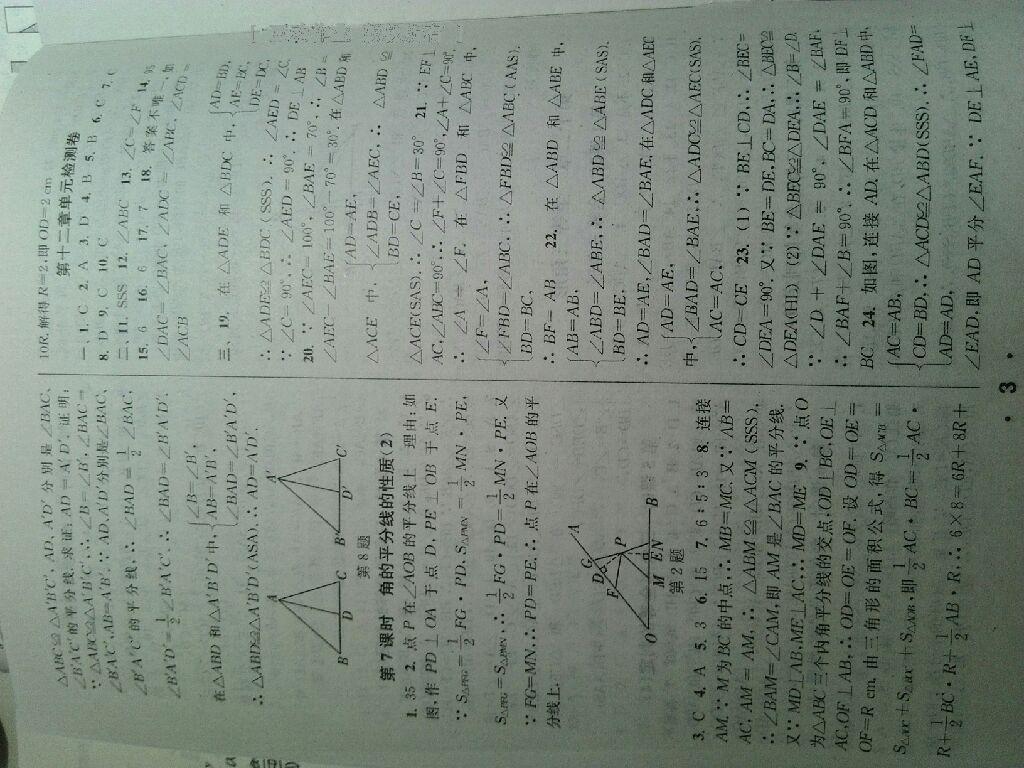 △ABC≌△A'B'C', AD、A'D' 分别是∠BAC、
∠B'A'C' 的平分线. 求证: AD=A'D'. 证明:
∵△ABC≌△A'B'C', ∴∠B=∠B', ∠BAC=
∠B'A'C', AB=A'B'. ∵AD、A'D' 分别是∠BAC、
∠B'A'C' 的平分线, ∴∠BAD=1/2∠BAC,
∠B'A'D'=1/2∠B'A'C'. ∴∠BAD=∠B'A'D'.
在△ABD 和△A'B'D' 中,
∠B=∠B',
AB=A'B',
∠BAD=∠B'A'D',
∴△ABD≌△A'B'D'(ASA). ∴AD=A'D'.
A
B D C
A'
B' D' C'
第 8 题
第 7 课时 角的平分线的性质(2)
1. 35 2. 点 P 在∠AOB 的平分线上 理由: 如
图, 作 PD⊥OA 于点 D, PE⊥OB 于点 E.
∵S△PFG=1/2FG·PD, S△PMN=1/2MN·PE,
S△PFG=S△PMN, ∴1/2FG·PD=1/2MN·PE. 又
∵FG=MN, ∴PD=PE. ∴点 P 在∠AOB 的平
分线上.
A
G
D
F
P
O M E N B
第 2 题
3. C 4. A 5. 3 6. 15 7. 6:5:3 8. 连接
AM. ∵M 为 BC 的中点, ∴MB=MC. 又∵AB=
AC, AM=AM, ∴△ABM≌△ACM (SSS).
∴∠BAM=∠CAM, 即 AM 是∠BAC 的平分线.
又∵MD⊥AB, ME⊥AC, ∴MD=ME 9. ∵点 O
为△ABC 三个内角平分线的交点, OD⊥BC, OE⊥
AC, OF⊥AB, ∴OD=OE=OF. 设 OD=OE=
OF=R cm, 由三角形的面积公式, 得 S△ACB=
S△BOC+S△AOC+S△AOB, 即1/2AC·BC=1/2AC·
R+1/2BC·R+1/2AB·R, ∴6×8=6R+8R+
10R, 解得 R=2, 即 OD=2 cm
第十二章单元检测卷
一、1. C 2. A 3. D 4. B 5. B 6. C 7. C
8. D 9. C 10. C
二、11. SSS 12. ∠ABC 13. ∠C=∠F 14.
15. 6 16. 6 17. 7 18. 答案不唯一, 如
∠DAC=∠BAC, ∠ADC=∠ABC, ∠ACD=
∠ACB
三、19. 在△ADE 和△BDC 中,
AD=BD,
AE=BC,
DE=DC,
∴△ADE≌△BDC (SSS). ∴∠AED=∠C.
∵∠C=90°, ∴∠AED=90°. ∴DE⊥AB
20. ∵∠AEC=100°, ∠BAE=70°, ∴∠B=
∠AEC-∠BAE=100°-70°=30°. 在△ABD 和
△ACE 中,
AD=AE,
∠ADB=∠AEC, ∴△ABD≌
BD=CE,
△ACE(SAS). ∴∠C=∠B=30° 21. ∵EF⊥
AC, ∠ABC=90°, ∴∠F+∠C=90°, ∠A+∠C=90°.
∴∠A=∠F. 在△FBD 和△ABC 中,
∠F=∠A,
∠FBD=∠ABC, ∴△FBD≌△ABC(AAS).
BD=BC,
∴BF=AB 22. 在△ABD 和△ABE 中,
AB=AB,
∠ABD=∠ABE, ∴△ABD≌△ABE (SAS).
BD=BE,
∴AD=AE, ∠BAD=∠BAE. 在△ADC 和△AEC
中,
AD=AE,
∠BAD=∠BAE, ∴△ADC≌△AEC(SAS).
AC=AC,
∴CD=CE 23. (1) ∵BE⊥CD, ∴∠BEC=
∠DEA=90°. 又∵BE=DE, BC=DA, ∴△BEC≌
△DEA(HL) (2) ∵△BEC≌△DEA, ∴∠B=∠D.
∵∠D+∠DAE=90°, ∠DAE=∠BAF,
∴∠BAF+∠B=90°. ∴∠BFA=90°, 即 DF⊥
BC 24. 如图, 连接 AD. 在△ACD 和△ABD 中,
AC=AB,
CD=BD, ∴△ACD≌△ABD(SSS). ∴∠FAD=
AD=AD,
∠EAD, 即 AD 平分∠EAF. ∵DE⊥AE, DF⊥
· 3 ·